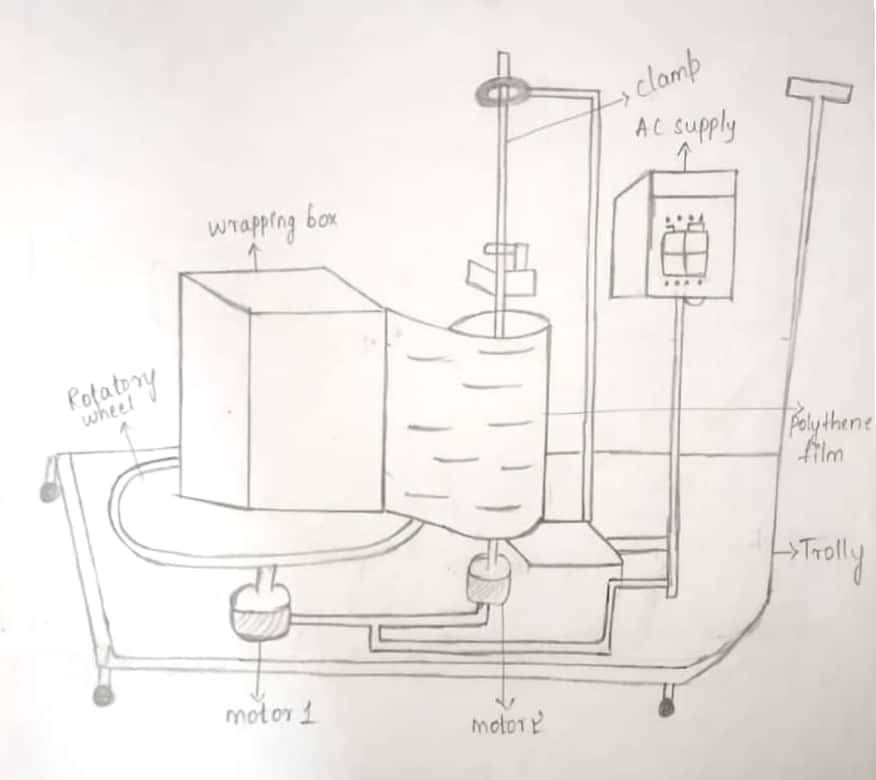 clamp
AC supply
wrapping box
Rotatory
wheel
polythene
film
Trolly
motor 1
motor 2